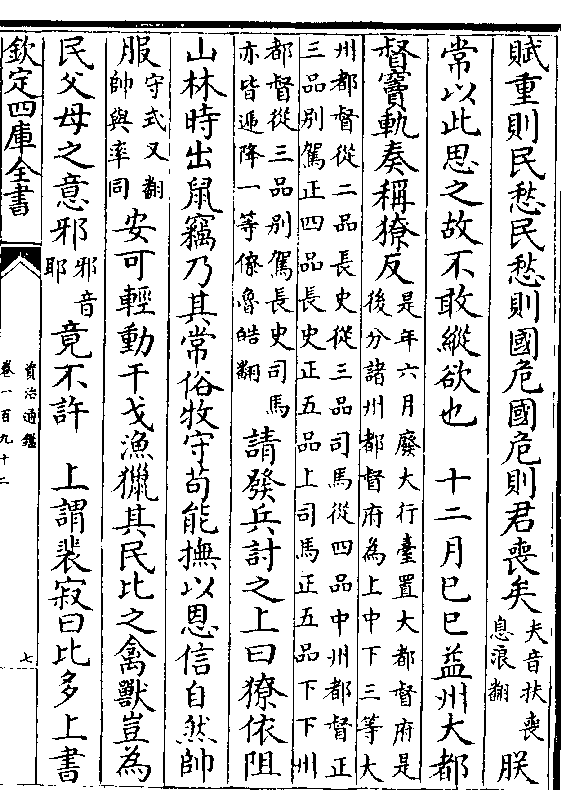 賦重則民愁民愁則國危國危則君喪矣夫音扶喪息浪翻朕
常以此思之故不敢縱欲也　十二月己巳益州大都
督竇軌奏稱獠反是年六月廢大行臺置大都督府是後分諸州都督府為上中下三等大
州都督從二品長史從三品司馬從四品中州都督正三品别駕正四品長史正五品上司馬正五品下下州
都督從三品别駕長史司馬亦皆遞降一等獠魯皓翻請發兵討之上曰獠依阻
山林時出鼠竊乃其常俗牧守苟能撫以恩信自然帥
服守式又翻帥與率同安可輕動干戈漁獵其民比之禽獸豈為
民父母之意邪邪音耶竟不許　上謂裴寂曰比多上書
欽定四庫全書
資治通鑑
卷一百九十二
七